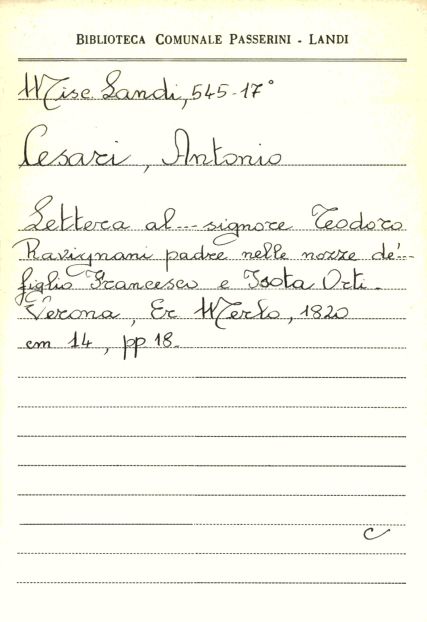 BIBLIOTECA COMUNALE PASSERINI - LANDI
Misc. Landi, 545-17°
Cesari, Antonio
Lettera al --- signore Teodoro
Ravignani padre nelle nozze de'---
figlio Francesco e Isota Orti -
Verona, Er Merlo, 1820
cm 14, pp 18-
C